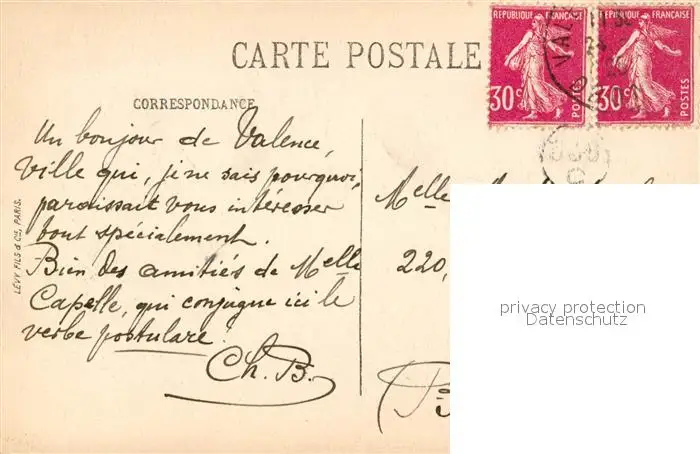 RÉPUBLIQUE FRANÇAISE
30c
POSTES
RÉPUBLIQUE FRANÇAISE
30c
POSTES
CARTE POSTALE
CORRESPONDANCE
Un bonjour de Valence,
ville qui, je ne sais pourquoi,
paraissait vous intéresser
tout spécialement.
Bien des amitiés de Melle
Capelle, qui conjugue ici le
verbe postulare!
Ch. B.
LÉVY FILS & Cie, PARIS.
Melle
220,
privacy protection
Datenschutz